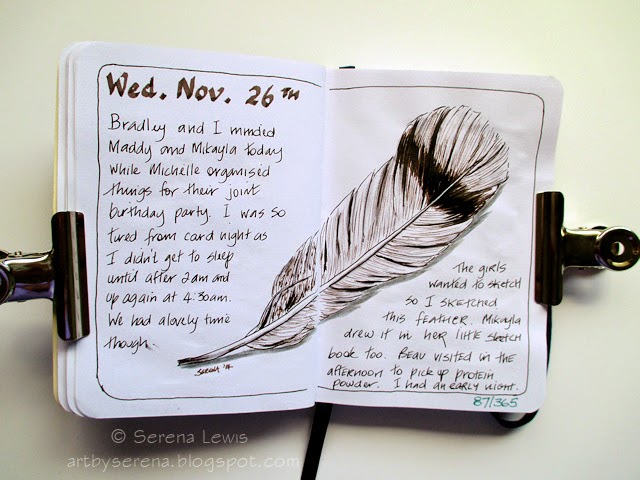 Wed. Nov. 26TH
Bradley and I minded
Maddy and Mikayla today
while Michelle organised
things for their joint
birthday party. I was so
tired from card night as
I didn't get to sleep
until after 2am and
up again at 4:30am.
We had a lovely time
though.
The girls
wanted to sketch
so I sketched
this feather. Mikayla
drew it in her little sketch
book too. Beau visited in the
afternoon to pick up protein
powder. I had an early night.
87/365
© Serena Lewis
artbyserena.blogspot.com